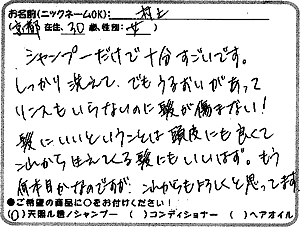 お名前(ニックネームOK): 村上
(京都 在住、30歳、性別: 女)
シャンプーだけで十分すごいです。
しっかり洗えて、でもうるおいがあって
リンスもいらないのに髪が傷まない!
髪にいいということは頭皮にも良くて
これから生えてくる髪にもいいはず。もう
何本目かなのですが、これからもよろしくと思ってます
●ご希望の商品に○をお付けください!
(○)天陽ル穂ノシャンプー ( )コンディショナー ( )ヘアオイル